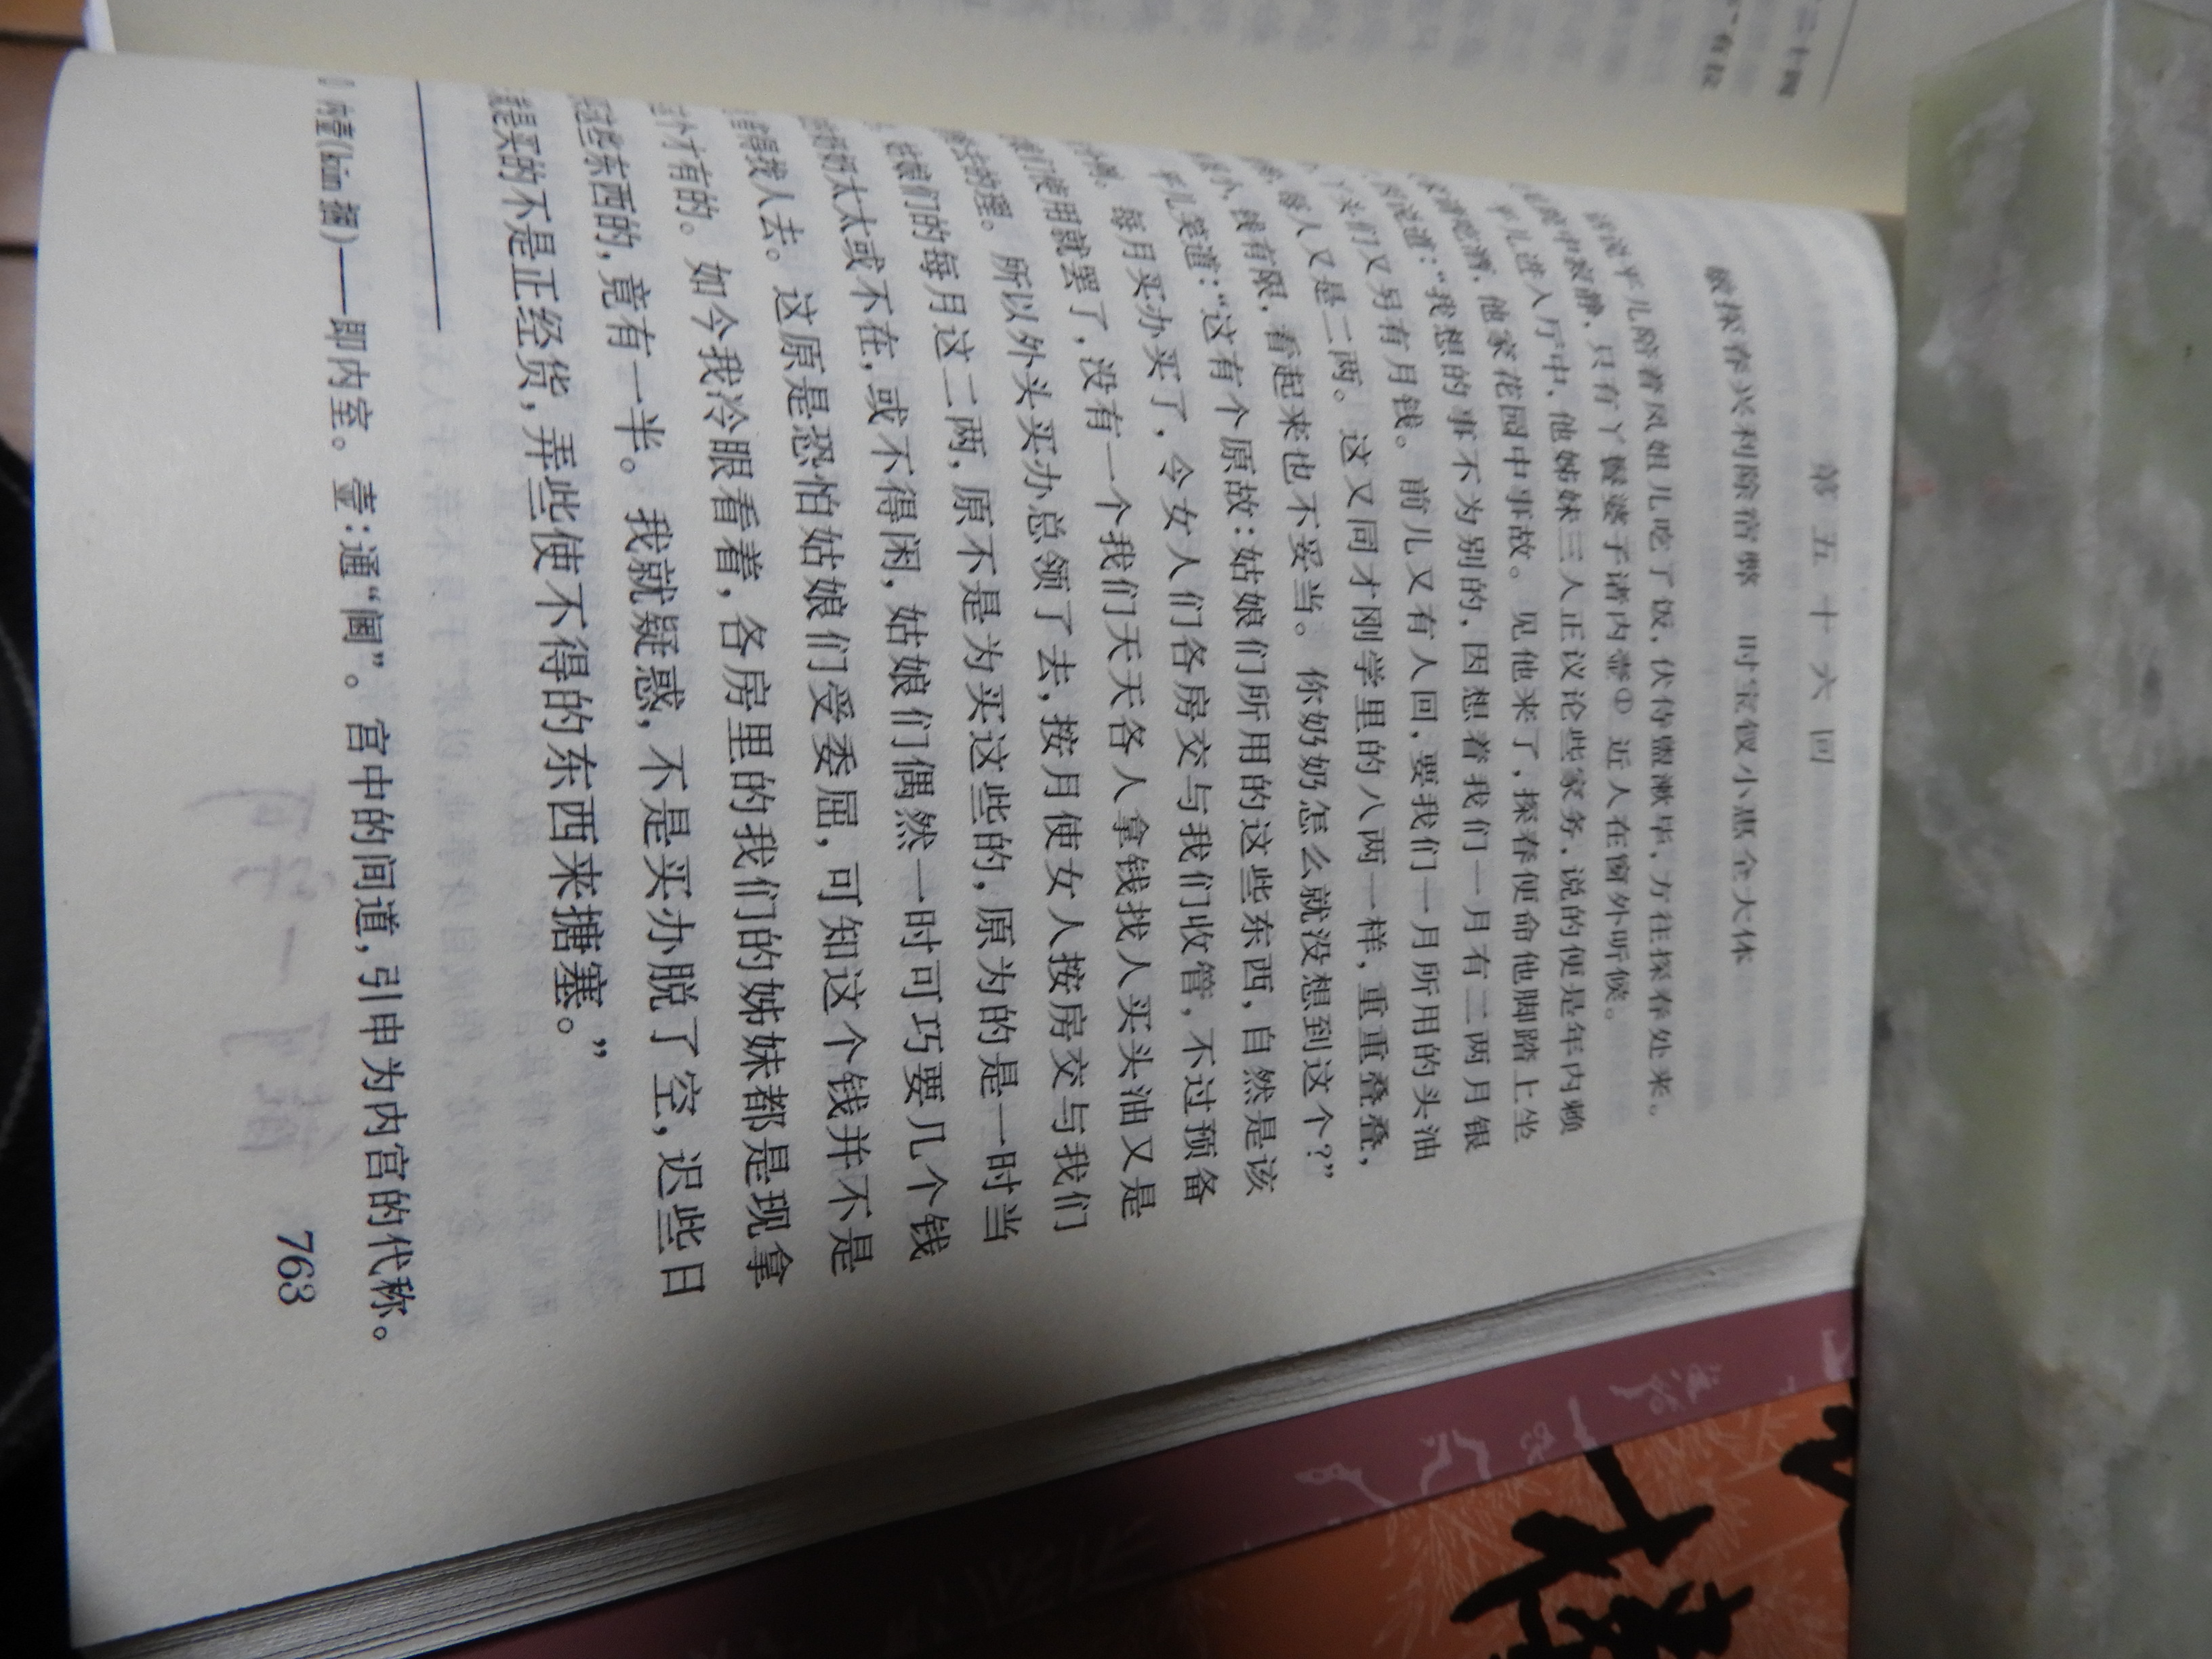 第五十六回
敏探春兴利除宿弊 时宝钗小惠全大体
话说平儿陪着凤姐儿吃了饭，伏侍盥漱毕，方往探春处来。
院中寂静，只有丫鬟婆子诸内壸①近人在窗外听候。
平儿进入厅中，他姊妹三人正议论些家务，说的便是年内赖
家请吃酒，他家花园中事故。见他来了，探春便命他脚踏上坐
因说道：“我想的事不为别的，因想着我们一月有二两月银
丫头们又另有月钱。前儿又有人回，要我们一月所用的头油
每人又是二两。这又同才刚学里的八两一样，重重叠叠，
小，钱有限，看起来也不妥当。你奶奶怎么就没想到这个？”
平儿笑道：“这有个原故：姑娘们所用的这些东西，自然是该
每月买办买了，令女人们各房交与我们收管，不过预备
们使用就罢了，没有一个我们天天各人拿钱找人买头油又是
的理。所以外头买办总领了去，按月使女人按房交与我们
姑娘们的每月这二两，原不是为买这些的，原为的是一时当
奶奶太太或不在，或不得闲，姑娘们偶然一时可巧要几个钱
得找人去。这原是恐怕姑娘们受委屈，可知这个钱并不是
才有的。如今我冷眼看着，各房里的我们的姊妹都是现拿
这些东西的，竟有一半。我就疑惑，不是买办脱了空，迟些日
就是买的不是正经货，弄些使不得的东西来搪塞。”
① 内壸(kǔn 捆)——即内室。壸：通“阃”。宫中的间道，引申为内宫的代称。
763